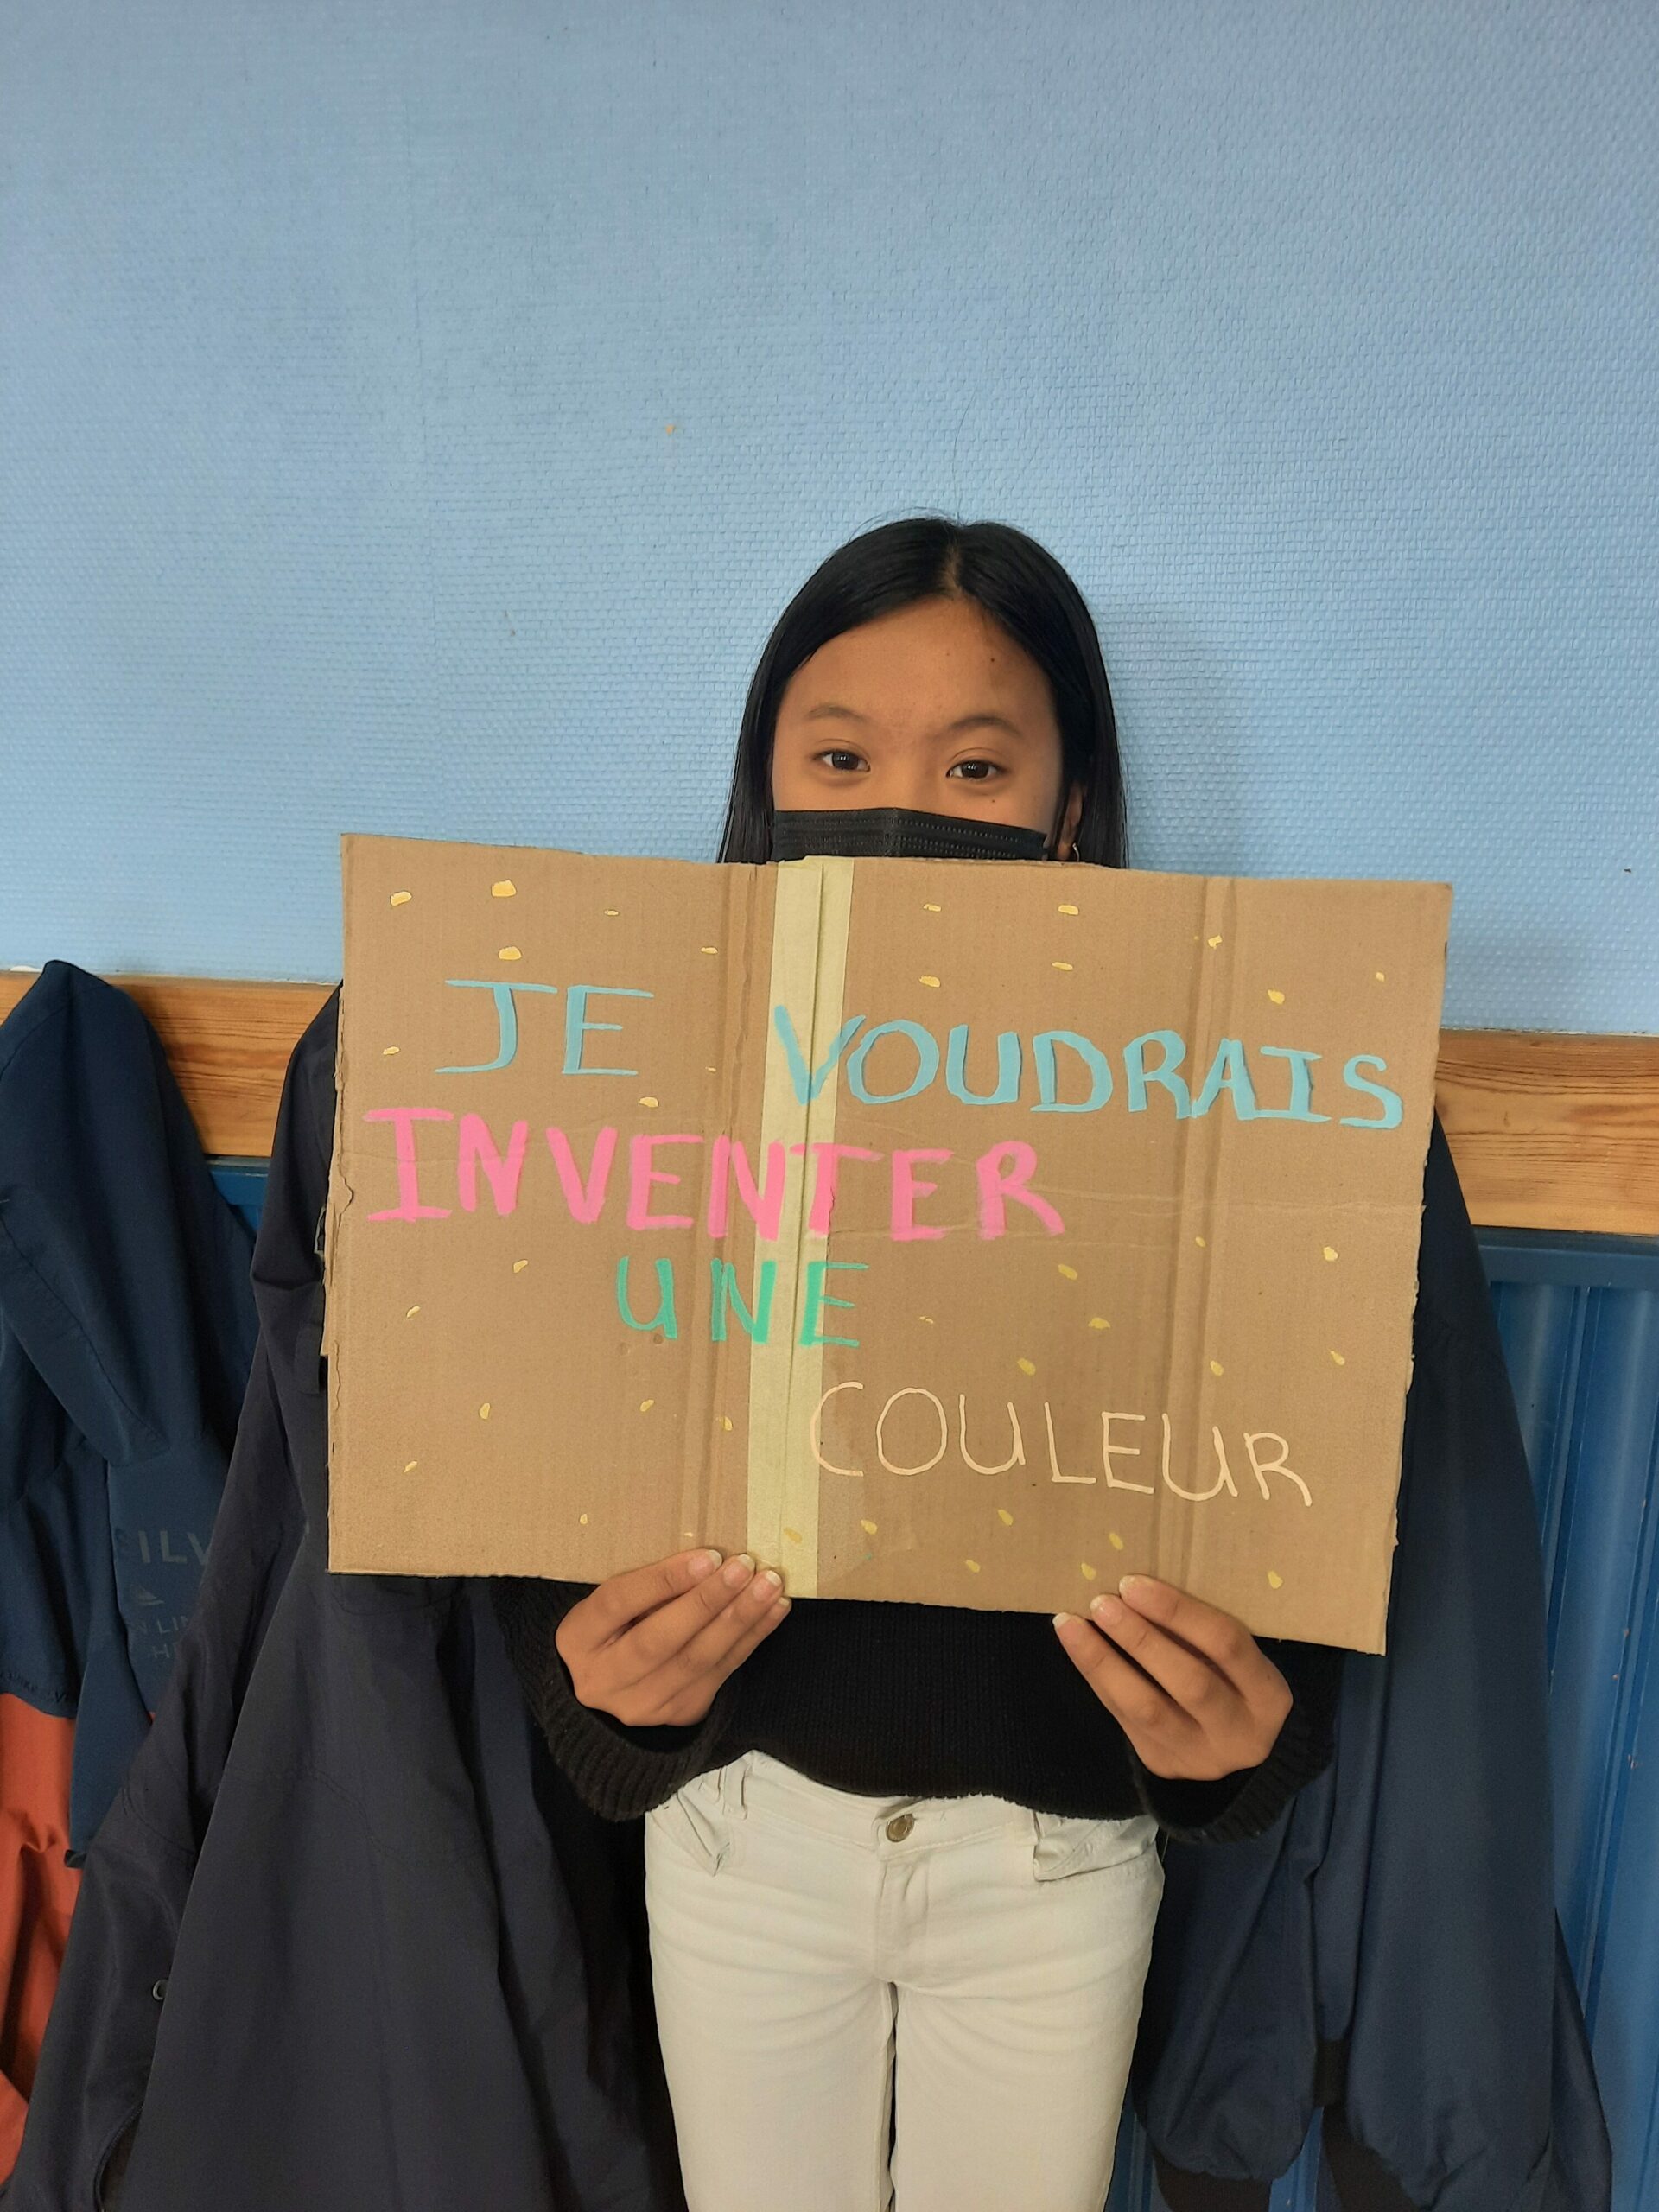 JE VOUDRAIS
INVENTER
UNE
COULEUR